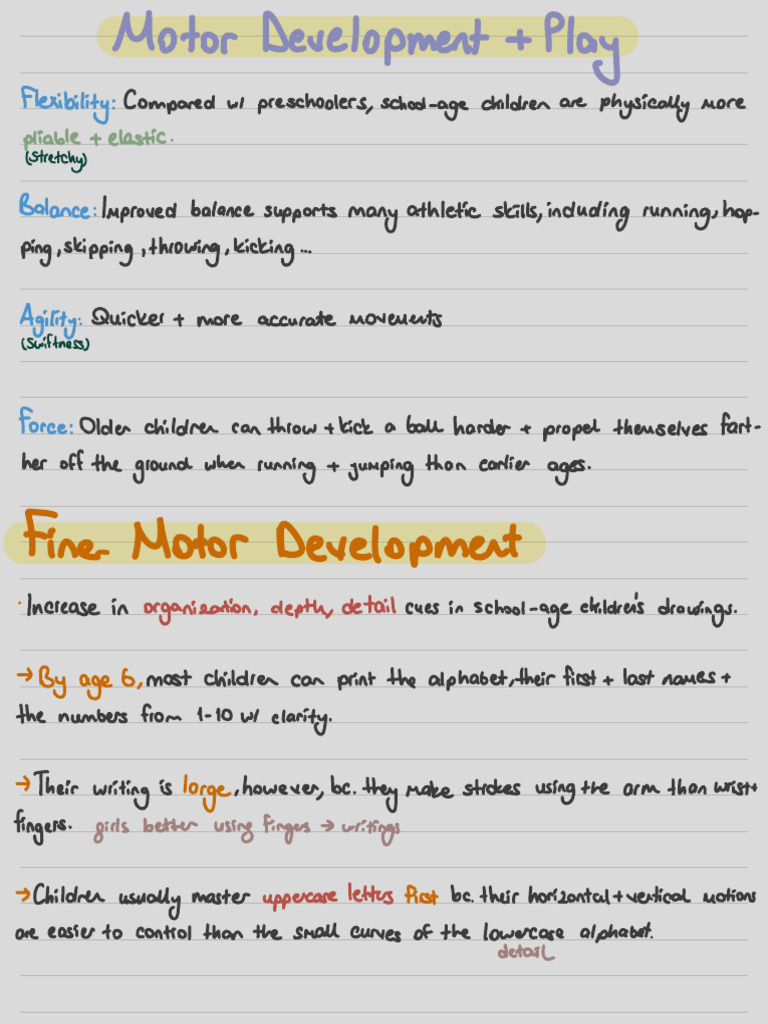 Motor Development + Play
Flexibility: Compared w/ preschoolers, school-age children are physically more
pliable + elastic.
(stretchy)
Balance: Improved balance supports many athletic skills, including running, hop-
ping, skipping, throwing, kicking...
Agility: Quicker + more accurate movements
(swiftness)
Force: Older children can throw + kick a ball harder + propel themselves fart-
her off the ground when running + jumping than earlier ages.
Fine- Motor Development
· Increase in organization, depth, detail cues in school-age children's drawings.
→ By age 6, most children can print the alphabet, their first + last names +
the numbers from 1-10 w/ clarity.
→ Their writing is large, however, bc. they make strokes using the arm than wrist +
fingers. girls better using fingers → writings
→ Children usually master uppercase letters first bc. their horizontal + vertical motions
are easier to control than the small curves of the lowercase alphabet.
detail